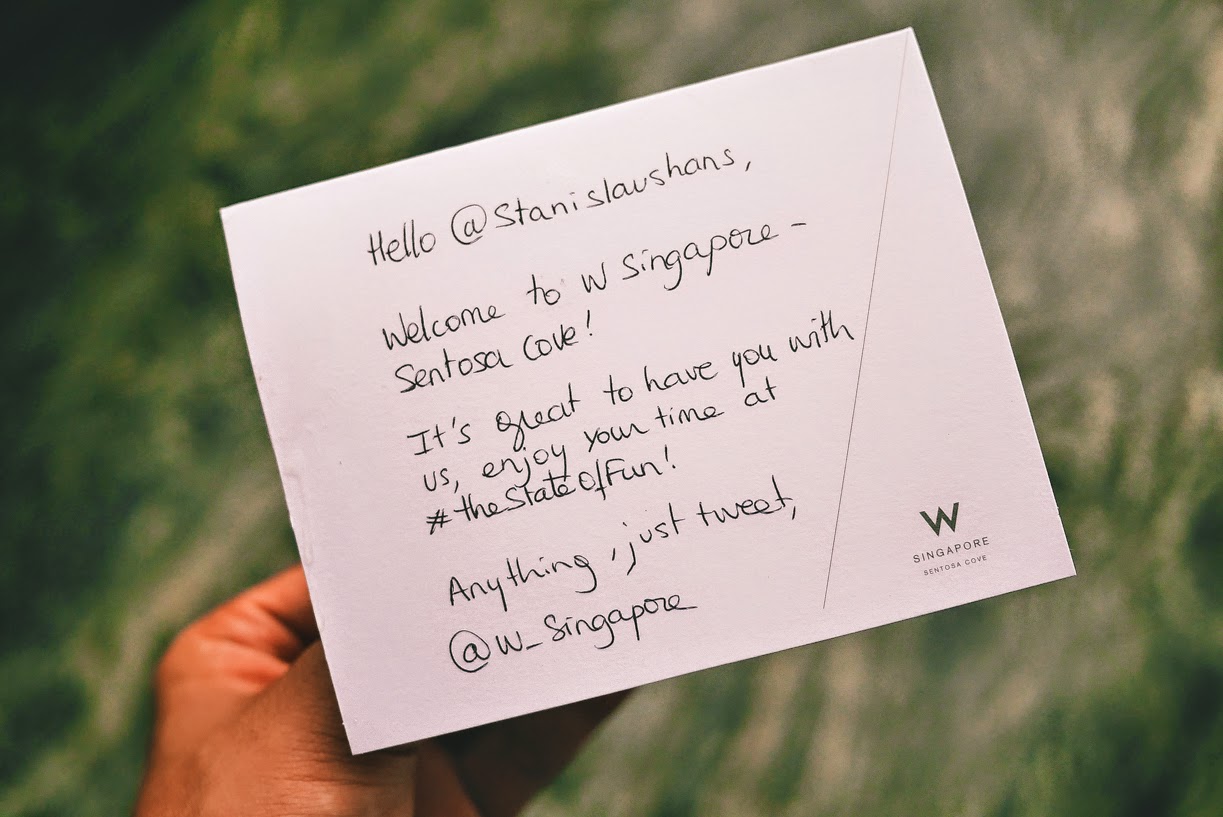 Hello @Stanislaushans,
Welcome to W Singapore -
Sentosa Cove!
It's great to have you with
us, enjoy your time at
#theStateOfFun!
Anything, just tweet,
@W_Singapore
W
SINGAPORE
SENTOSA COVE